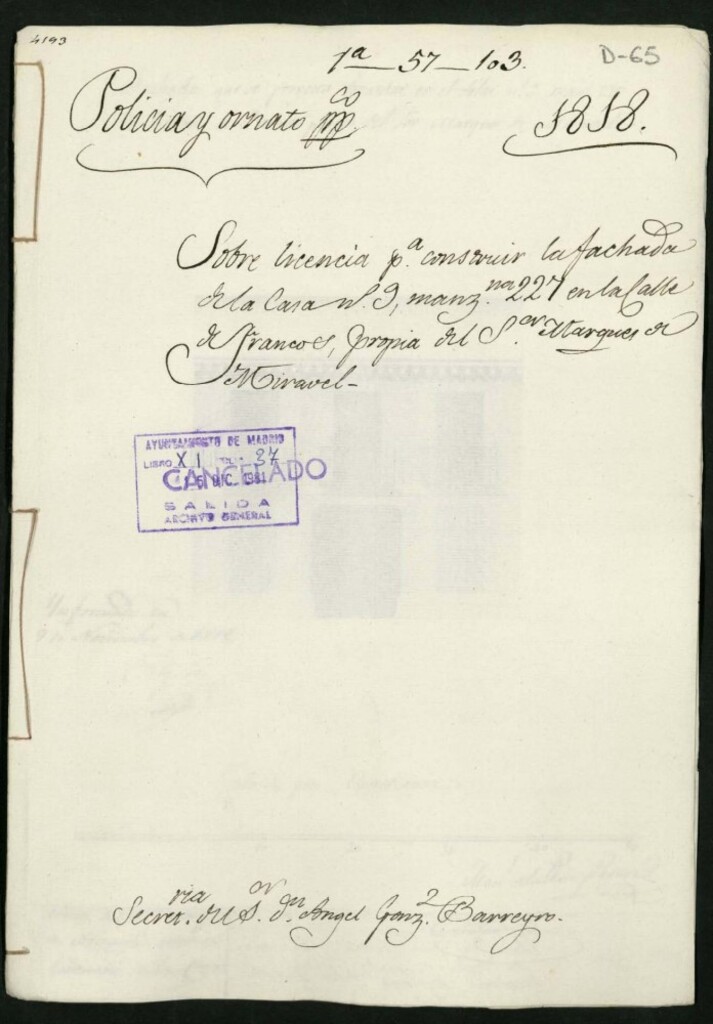 4193
1ª-57-103.
D-65
Policia y ornato pp.co
1818.
Sobre licencia p.a construir la fachada
de la Casa n.º 9, manz.na 227 en la Calle
de Francos, propia del S.or Marques de
Miravel-
AYUNTAMIENTO DE MADRID
LIBRO XI 37
CANCELADO
15 DIC. 1981
SALIDA
ARCHIVO GENERAL
Secret.ria del S.or dn Angel Gonz.z Barreyro.